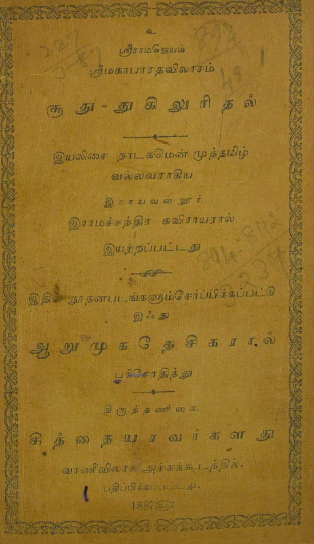 உ
ஸ்ரீராமஜெயம்
ஸ்ரீமகாபாரதவிலாசம்
சூது-துகிலுரிதல்
இயலிசை நாடகமென் முத்தமிழ்
வல்லவராகிய
இராயவன்னூர்
இராமச்சந்திர கவிராயரால்
இயற்றப்பட்டது
இதில் நூதனபடங்களும்சேர்ப்பிக்கப்பட்டு
இஃது
ஆறுமுகதேசிகரால்
பரிசோதித்து
திருத்தணிகை
சித்தையரவர்களது
வாணிவிலாச அச்சுக்கூடத்தில்
பதிப்பிக்கப்பட்டது.
1887